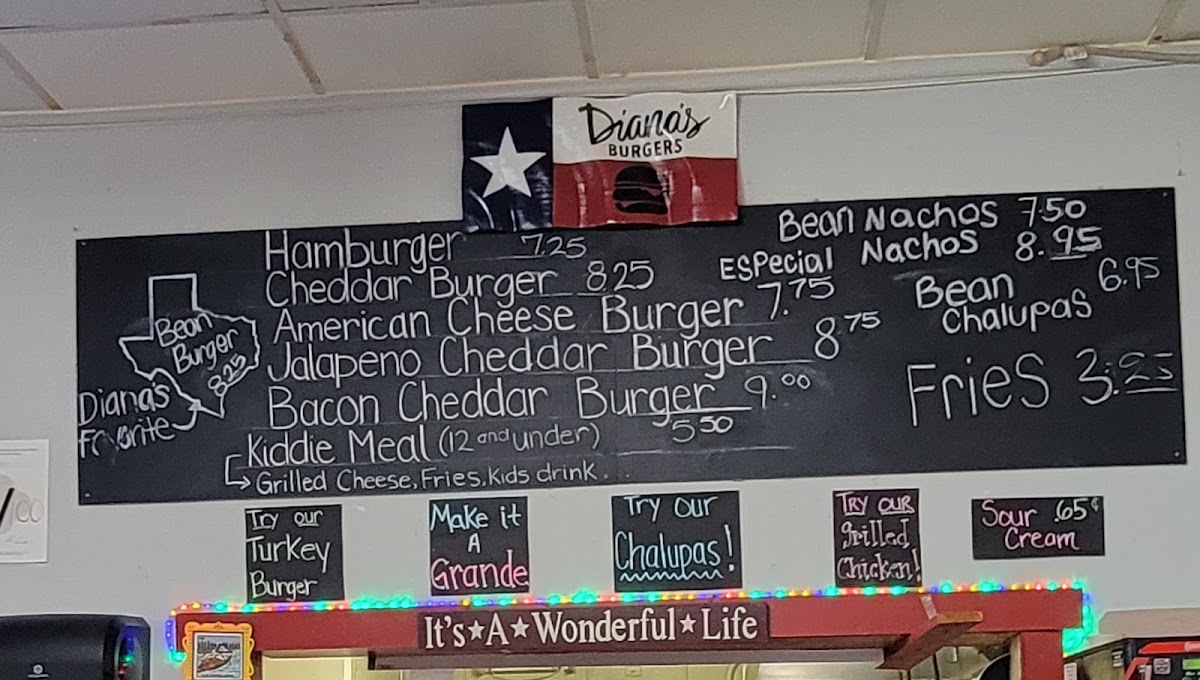 Diana's
BURGERS
Hamburger 7.25
Cheddar Burger 8.25
American Cheese Burger 7.75
Jalapeno Cheddar Burger 8.75
Bacon Cheddar Burger 9.00
Kiddie Meal (12 and under) 5.50
Grilled Cheese, Fries, Kids drink...
Bean
Burger
8.25
Diana's
Favorite
Bean Nachos 7.50
Especial Nachos 8.95
Bean
Chalupas 6.95
Fries 3.25
Try our
Turkey
Burger
Make it
A
Grande
Try our
Chalupas!
TRY OUR
Grilled
Chicken!
Sour .65¢
Cream
It's★A★Wonderful★Life